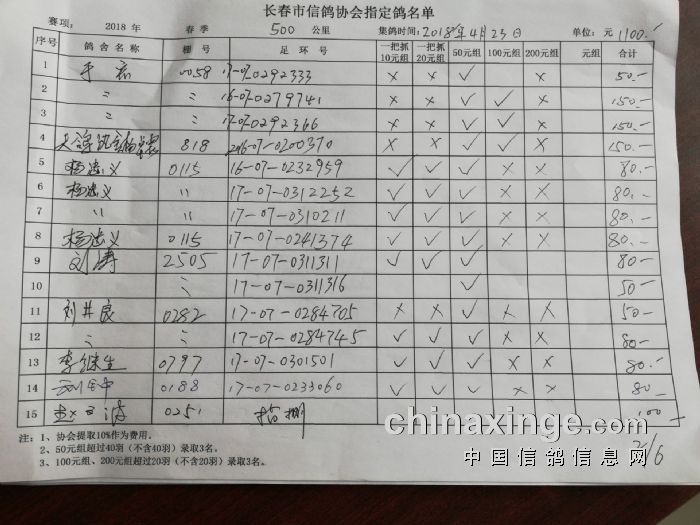 长春市信鸽协会指定鸽名单
赛项: 2018 年 春季 500 公里 集鸽时间: 2018年4月23日 单位: 元 1100.—
序号 鸽舍名称 棚号 足环号 一把抓10元组 一把抓20元组 50元组 100元组 200元组 元组 合计
1 0058 17-07-0292333 × × ✓ × 50.—
2 〃 〃 16-07-0279741 × × ✓ ✓ × 150.—
3 〃 〃 17-07-0292366 × × ✓ ✓ × 150.—
4 818 2016-07-0200370 × × ✓ ✓ × 150.—
5 杨忠义 0115 16-07-0232959 ✓ ✓ ✓ × × 80.—
6 杨忠义 〃 17-07-0312252 ✓ ✓ ✓ × × 80.—
7 〃 〃 17-07-0310211 ✓ ✓ ✓ × × 80.—
8 杨忠义 0115 17-07-0241374 ✓ ✓ ✓ × × 80.—
9 刘涛 2505 17-07-0311311 ✓ ✓ ✓ 80—
10 〃 17-07-0311316 ✓ 50—
11 刘井良 0282 17-07-0284705 × × ✓ × × 50—
12 〃 〃 17-07-0284745 ✓ ✓ ✓ × × 80—
13 李继生 0797 17-07-0301501 ✓ ✓ ✓ × × 80.—
14 0188 17-07-0233060 ✓ ✓ ✓ × × 80
15 0251 指捌 100
注: 1、协会提取10%作为费用。
2、50元组超过40羽（不含40羽）录取3名。
3、100元组、200元组超过20羽（不含20羽）录取3名。
chinaxinge.com
中国信鸽信息网